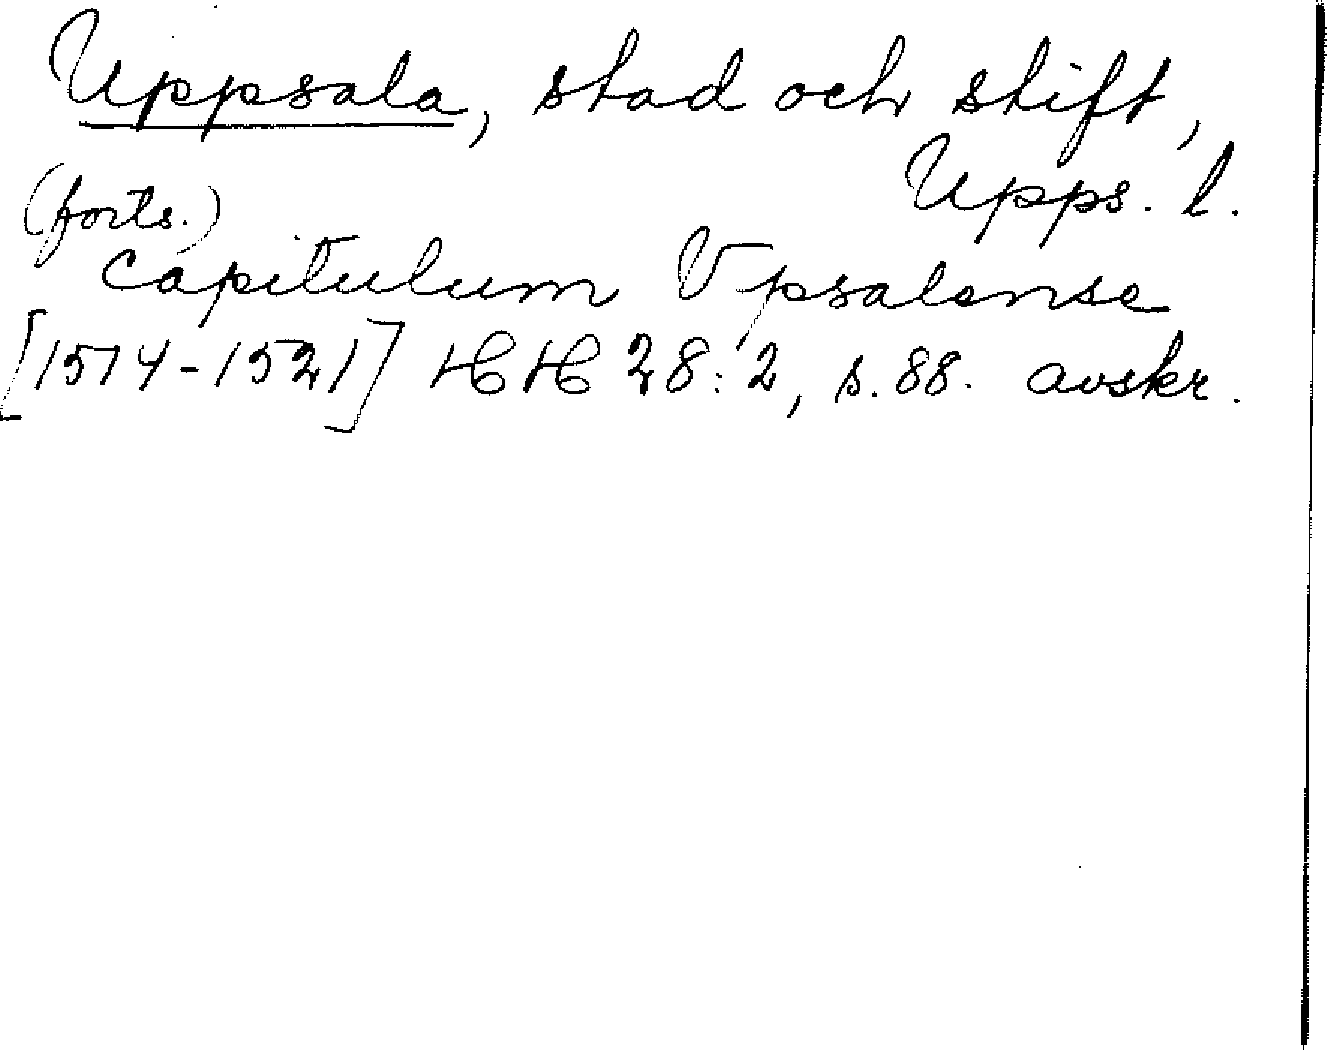 Uppsala, stad och stift,
Upps. l.
(forts.)
Capitulum Vpsalense
[1514-1521] HH 28:2, s. 88. avskr.